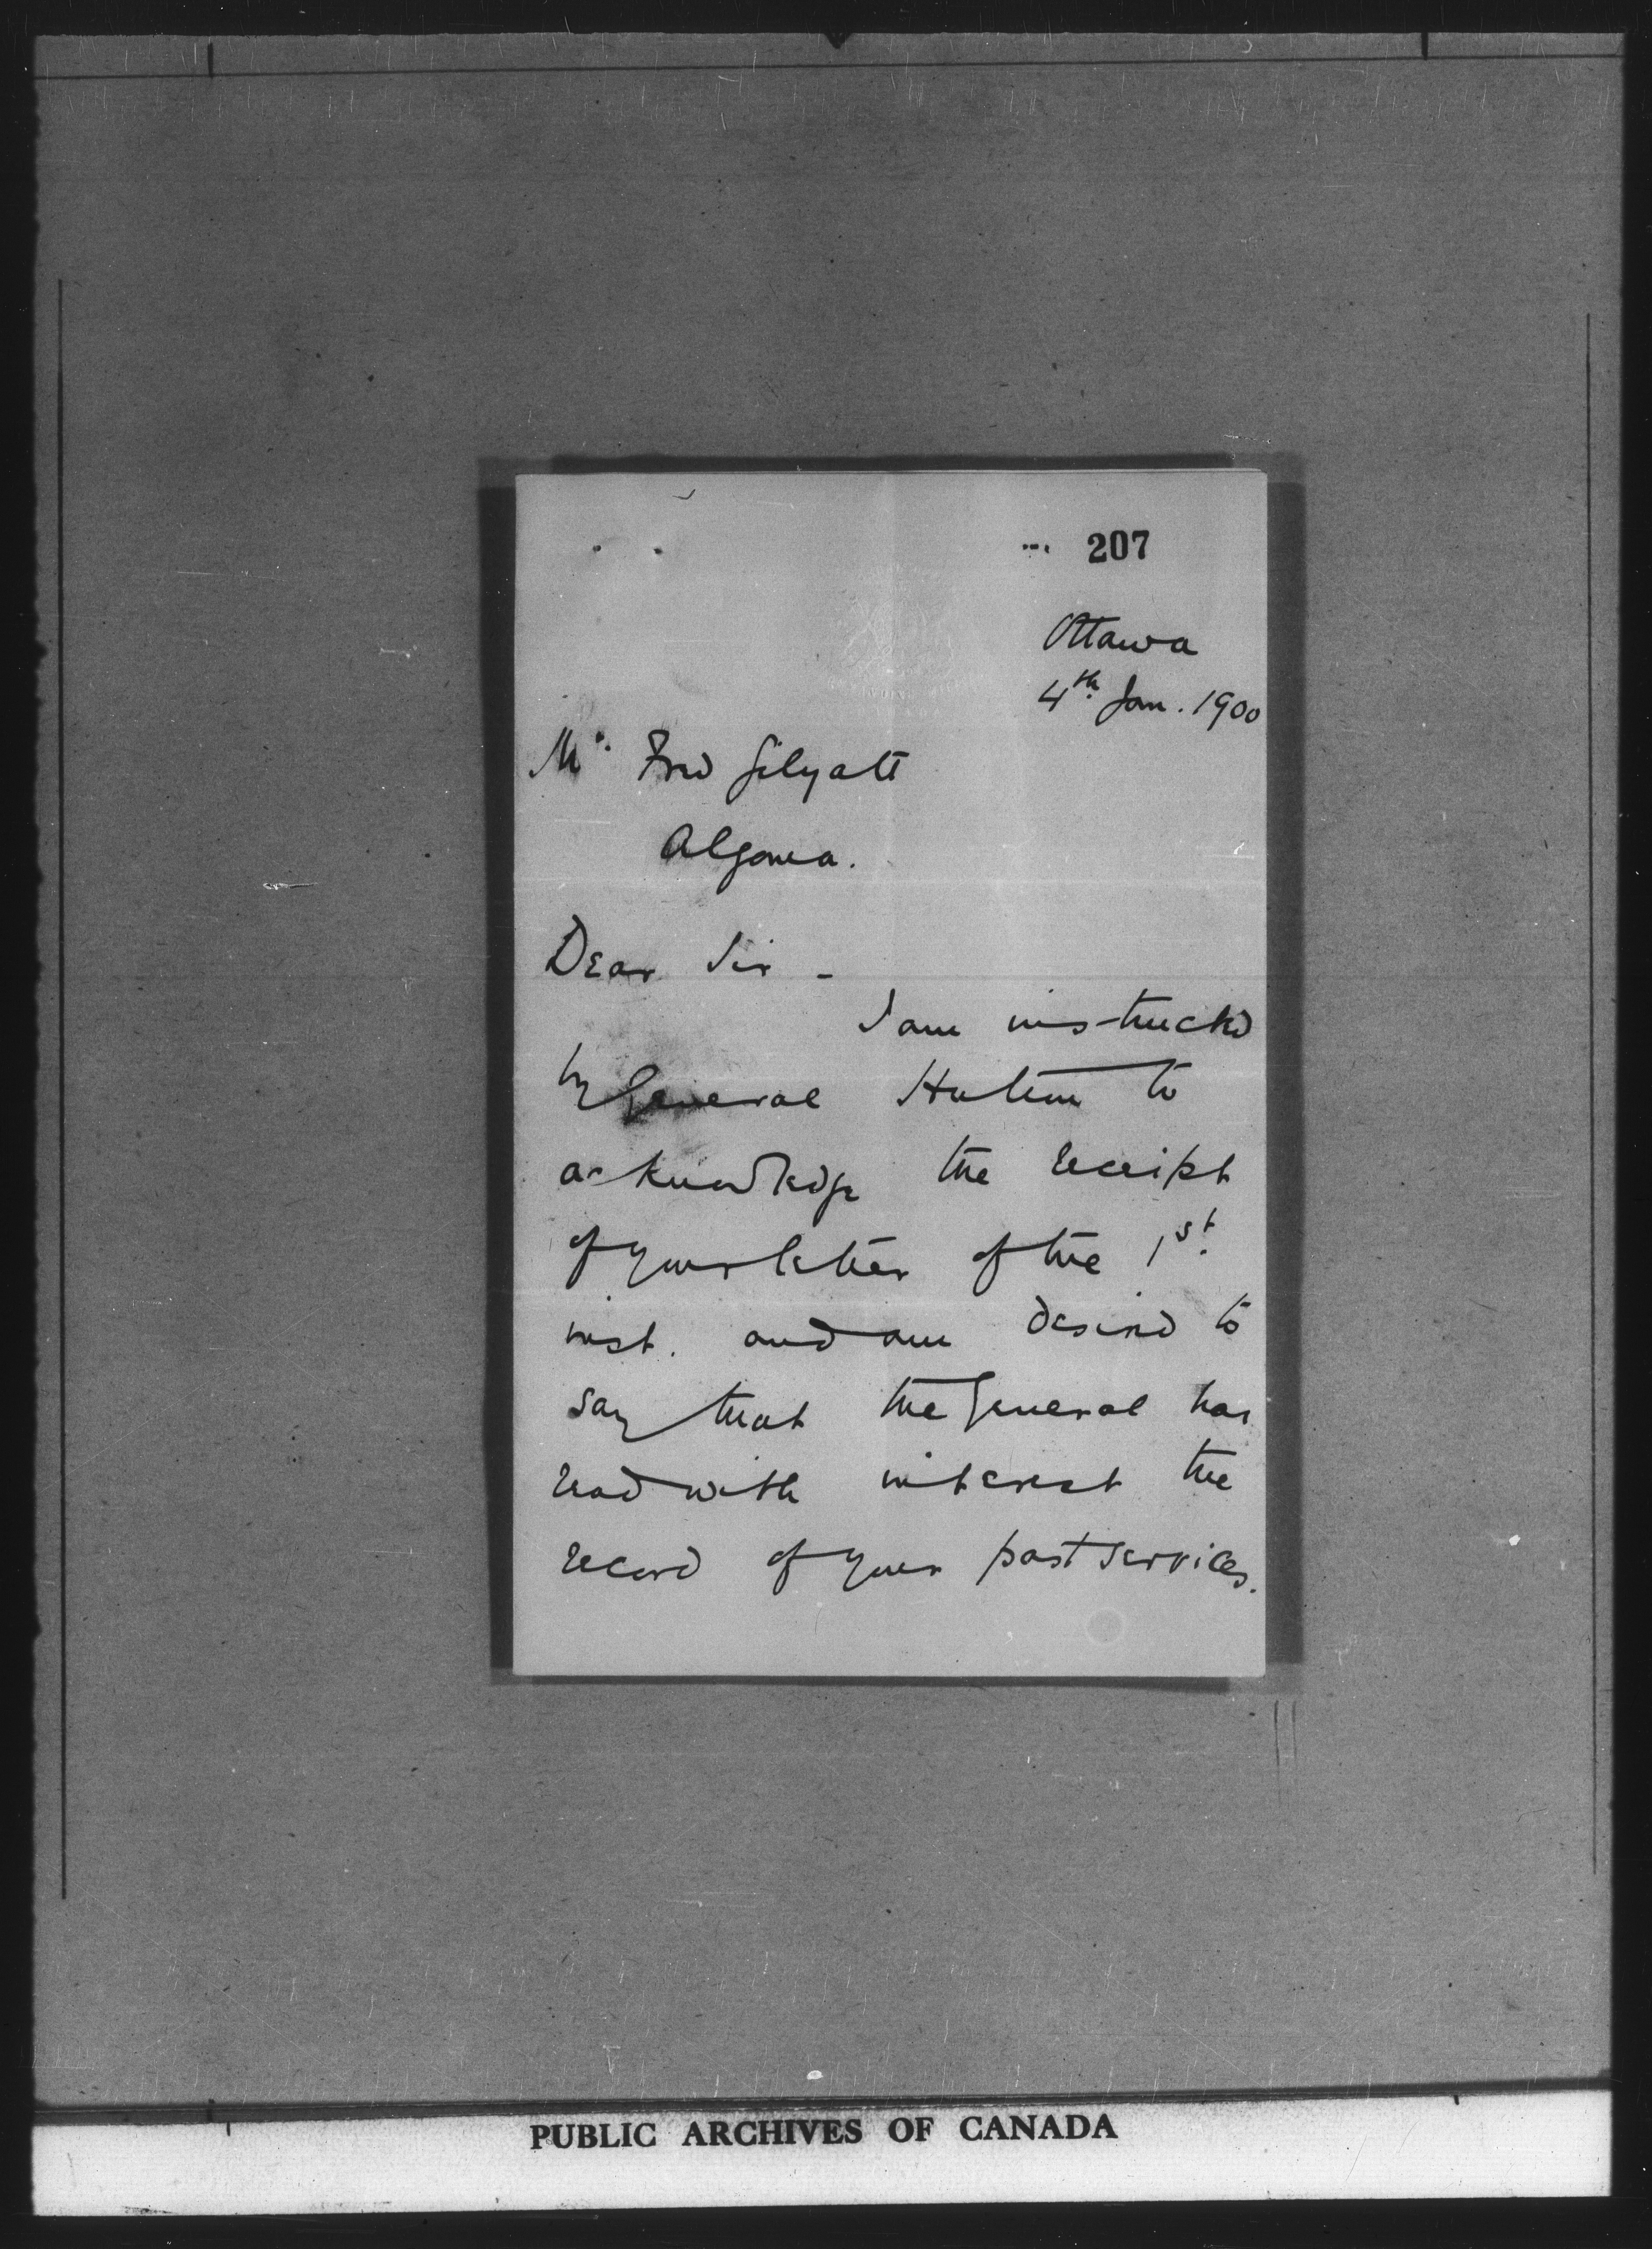 207
Ottawa
4th Jan. 1900
Mr. Fred Gilyatt
Algoma.
Dear Sir -
I am instructed
by General Hutton to
acknowledge the receipt
of your letter of the 1st.
inst. and am desired to
say that the General has
read with interest the
record of your past services.
PUBLIC ARCHIVES OF CANADA